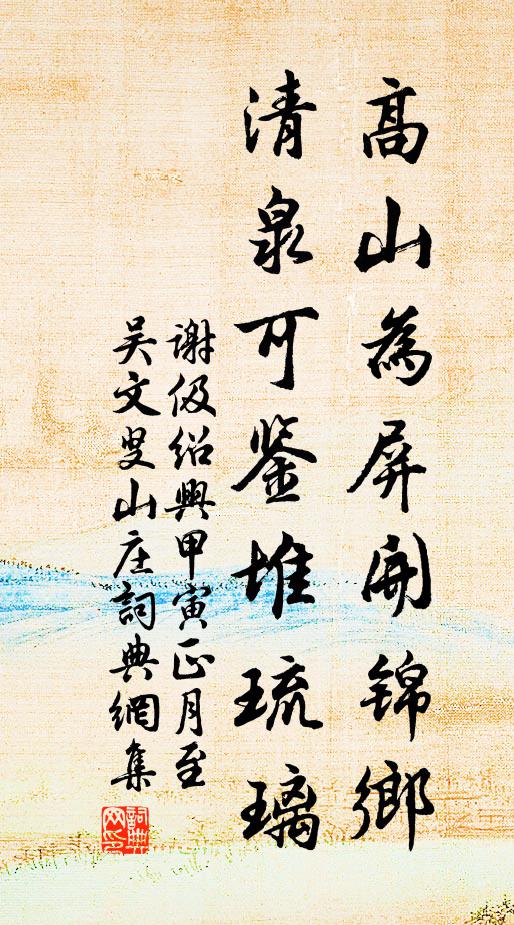 高山為屏開錦鄉
清泉可鑒堆琉璃
謝伋紹興甲寅正月至
吴文叟山庄詞典網集
詞典网印